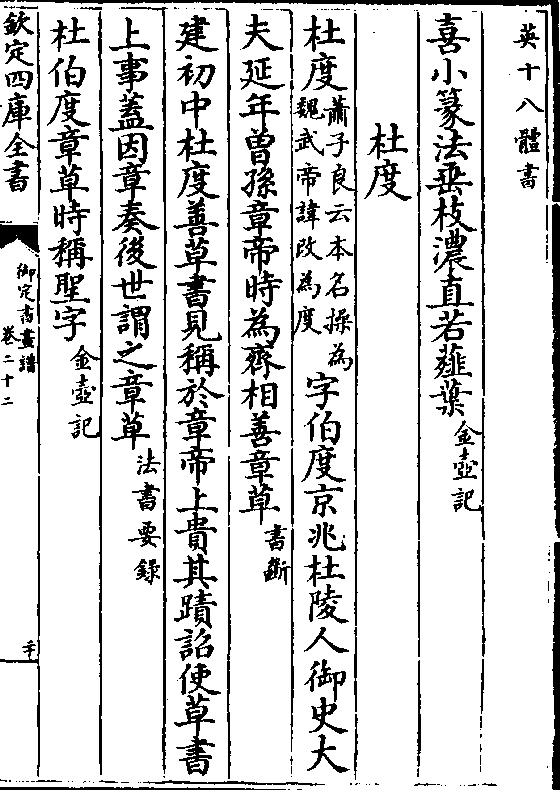 英十八體書
喜小篆法垂枝濃直若薤葉金壺記
杜度
杜度蕭子良云本名操為魏武帝諱改為度字伯度京兆杜陵人御史大
夫延年曽孫章帝時為齊相善章草書斷
建初中杜度善草書見稱於章帝上貴其蹟詔使草書
上事蓋因章奏後世謂之章草法書要録
杜伯度章草時稱聖字金壺記
欽定四庫全書
御定書畫譜
卷二十二